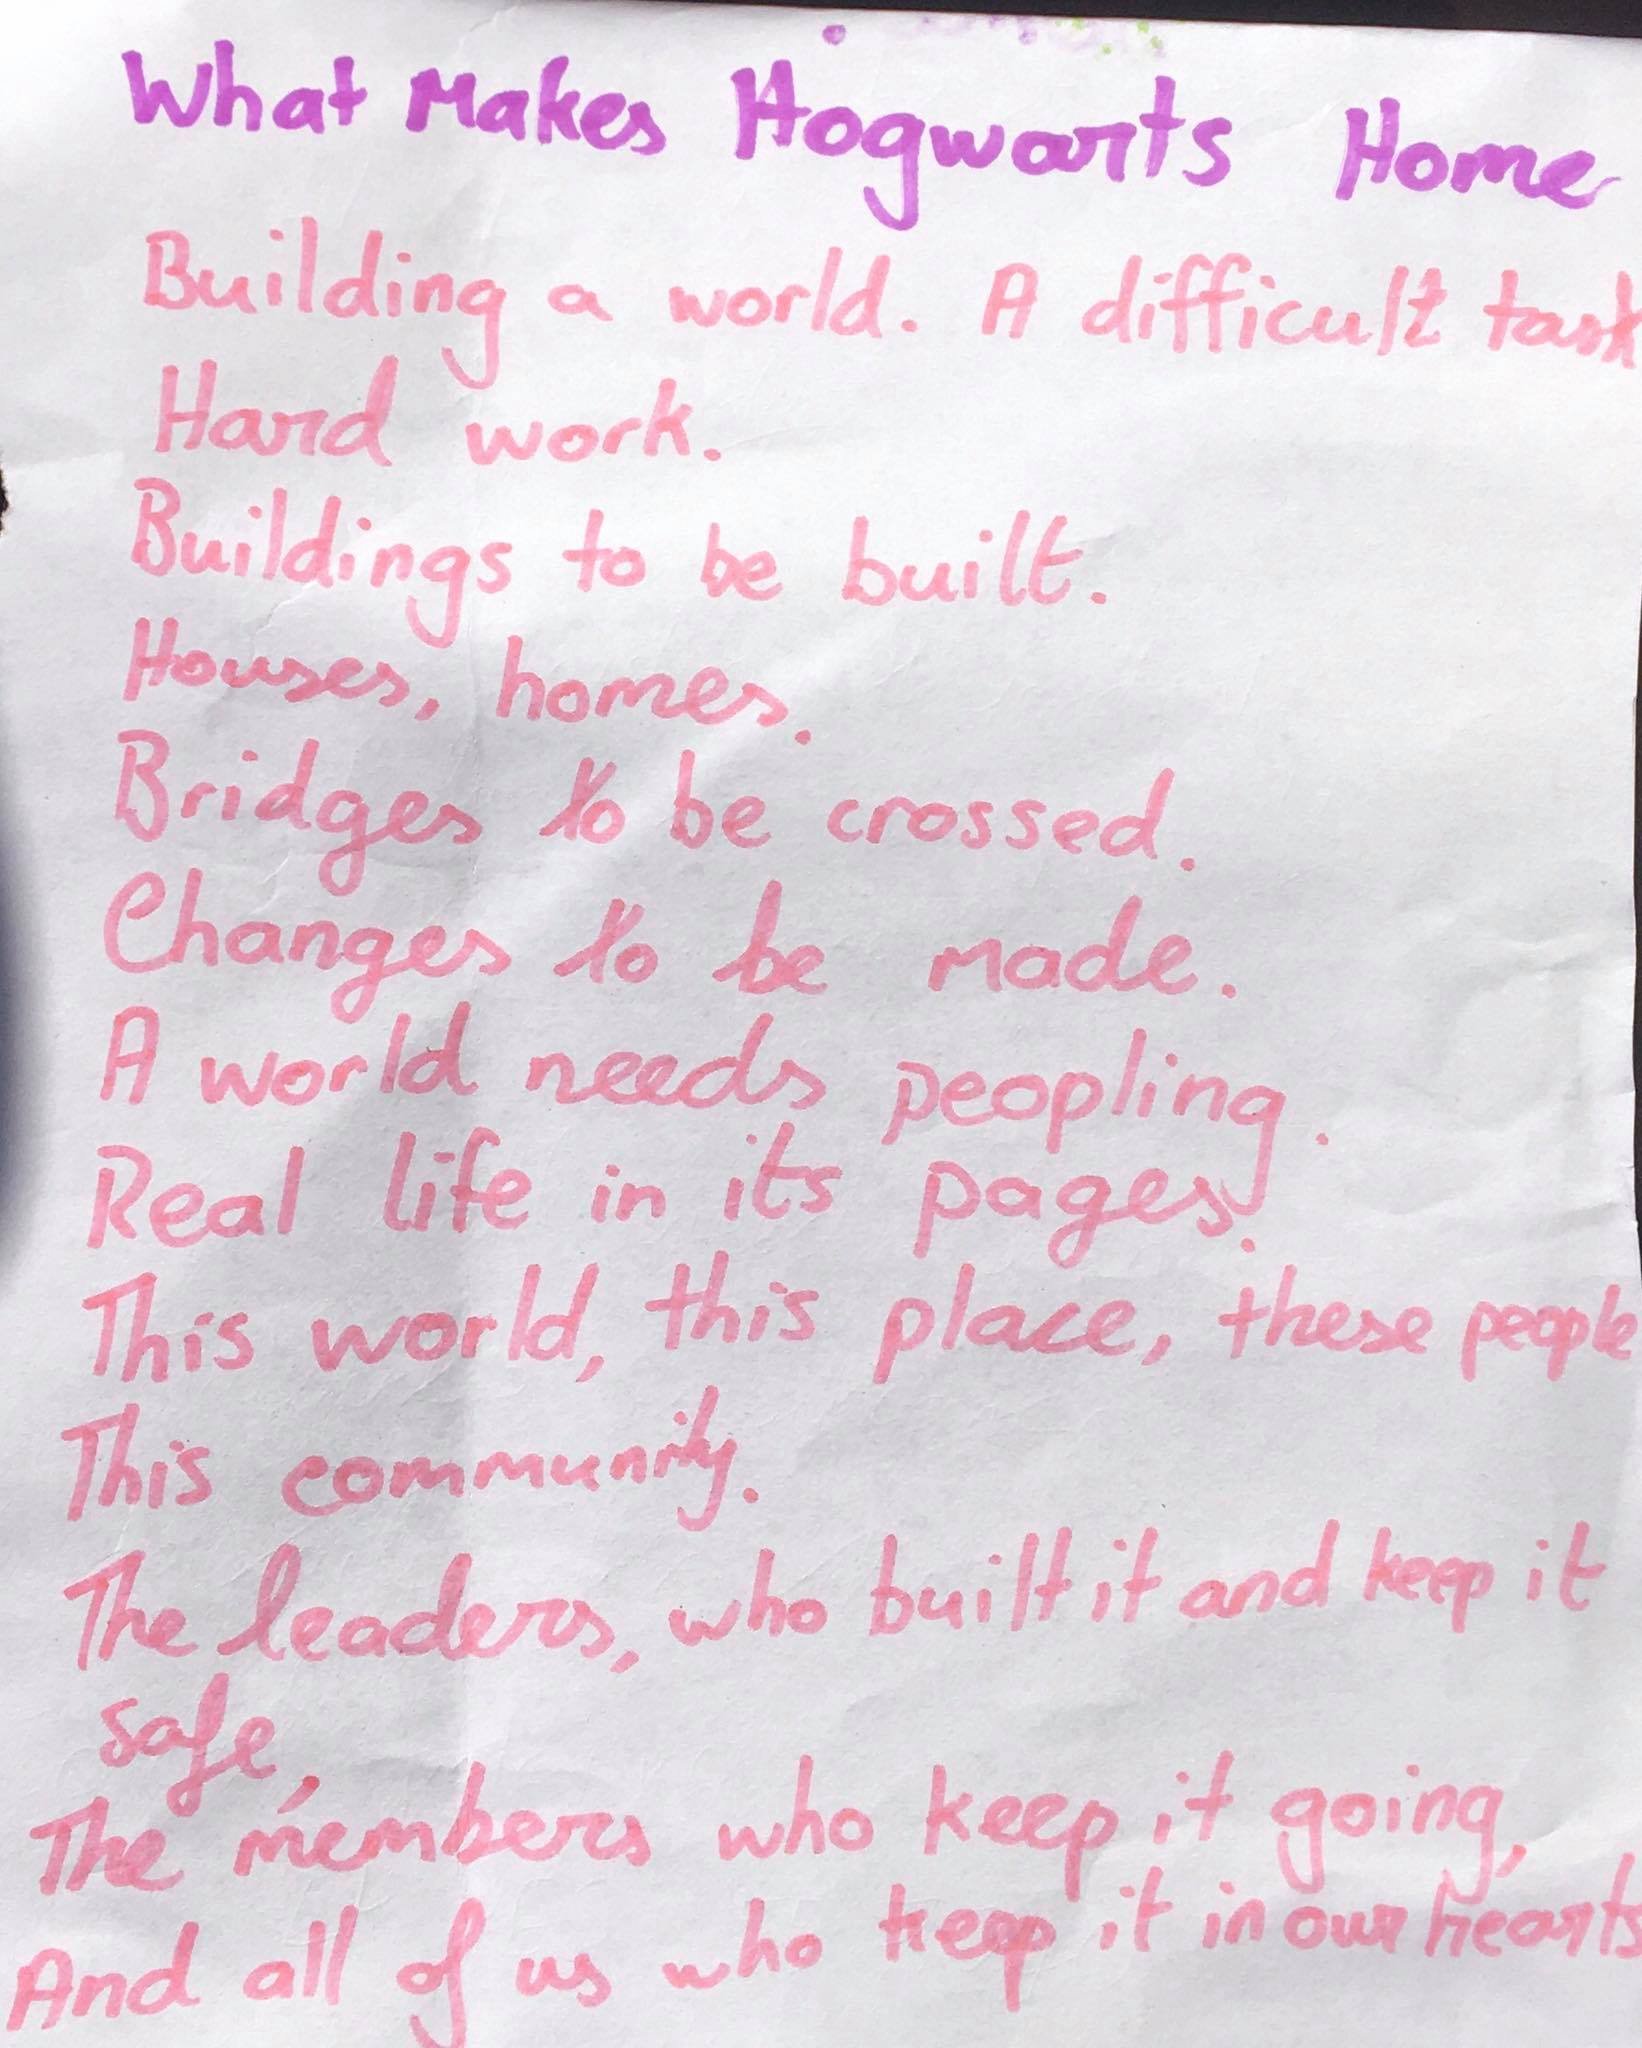 What Makes Hogwarts Home
Building a world. A difficult task
Hard work.
Buildings to be built.
Houses, homes.
Bridges to be crossed.
Changes to be made.
A world needs peopling.
Real life in its pages.
This world, this place, these people
This community.
The leaders, who built it and keep it
safe,
The members who keep it going,
And all of us who keep it in our hearts